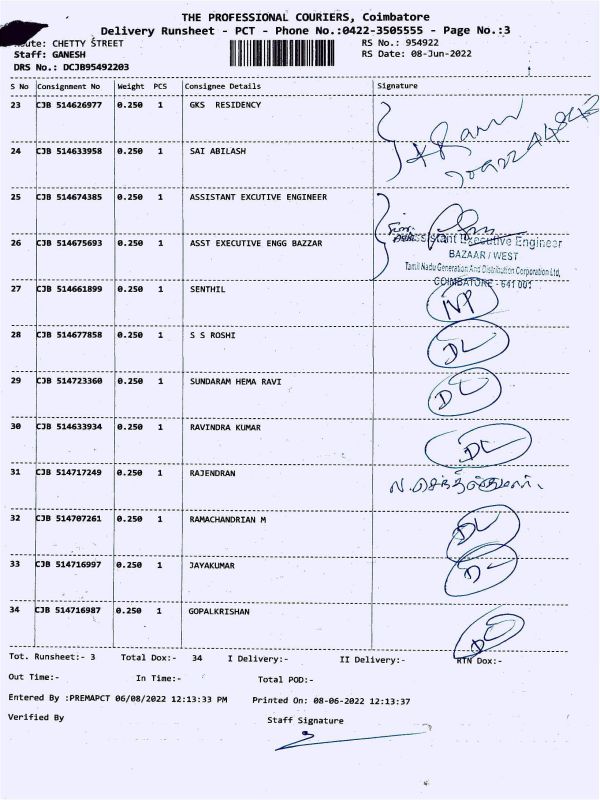 THE PROFESSIONAL COURIERS, Coimbatore
Delivery Runsheet - PCT - Phone No.:0422-3505555 - Page No.:3
Route: CHETTY STREET RS No.: 954922
Staff: GANESH RS Date: 08-Jun-2022
DRS No.: DCJB95492203
S No Consignment No Weight PCS Consignee Details Signature
23 CJB 514626977 0.250 1 GKS RESIDENCY
24 CJB 514633958 0.250 1 SAI ABILASH
25 CJB 514674385 0.250 1 ASSISTANT EXCUTIVE ENGINEER
26 CJB 514675693 0.250 1 ASST EXECUTIVE ENGG BAZZAR
Assistant Executive Engineer
BAZAAR / WEST
Tamil Nadu Generation And Distribution Corporation Ltd,
COIMBATORE - 641 001
27 CJB 514661899 0.250 1 SENTHIL NP
28 CJB 514677858 0.250 1 S S ROSHI DL
29 CJB 514723360 0.250 1 SUNDARAM HEMA RAVI DL
30 CJB 514633934 0.250 1 RAVINDRA KUMAR DL
31 CJB 514717249 0.250 1 RAJENDRAN
32 CJB 514707261 0.250 1 RAMACHANDRIAN M DL
33 CJB 514716997 0.250 1 JAYAKUMAR DL
34 CJB 514716987 0.250 1 GOPALKRISHAN DL
Tot. Runsheet:- 3 Total Dox:- 34 I Delivery:- II Delivery:- RTN Dox:-
Out Time:- In Time:- Total POD:-
Entered By :PREMAPCT 06/08/2022 12:13:33 PM Printed On: 08-06-2022 12:13:37
Verified By Staff Signature